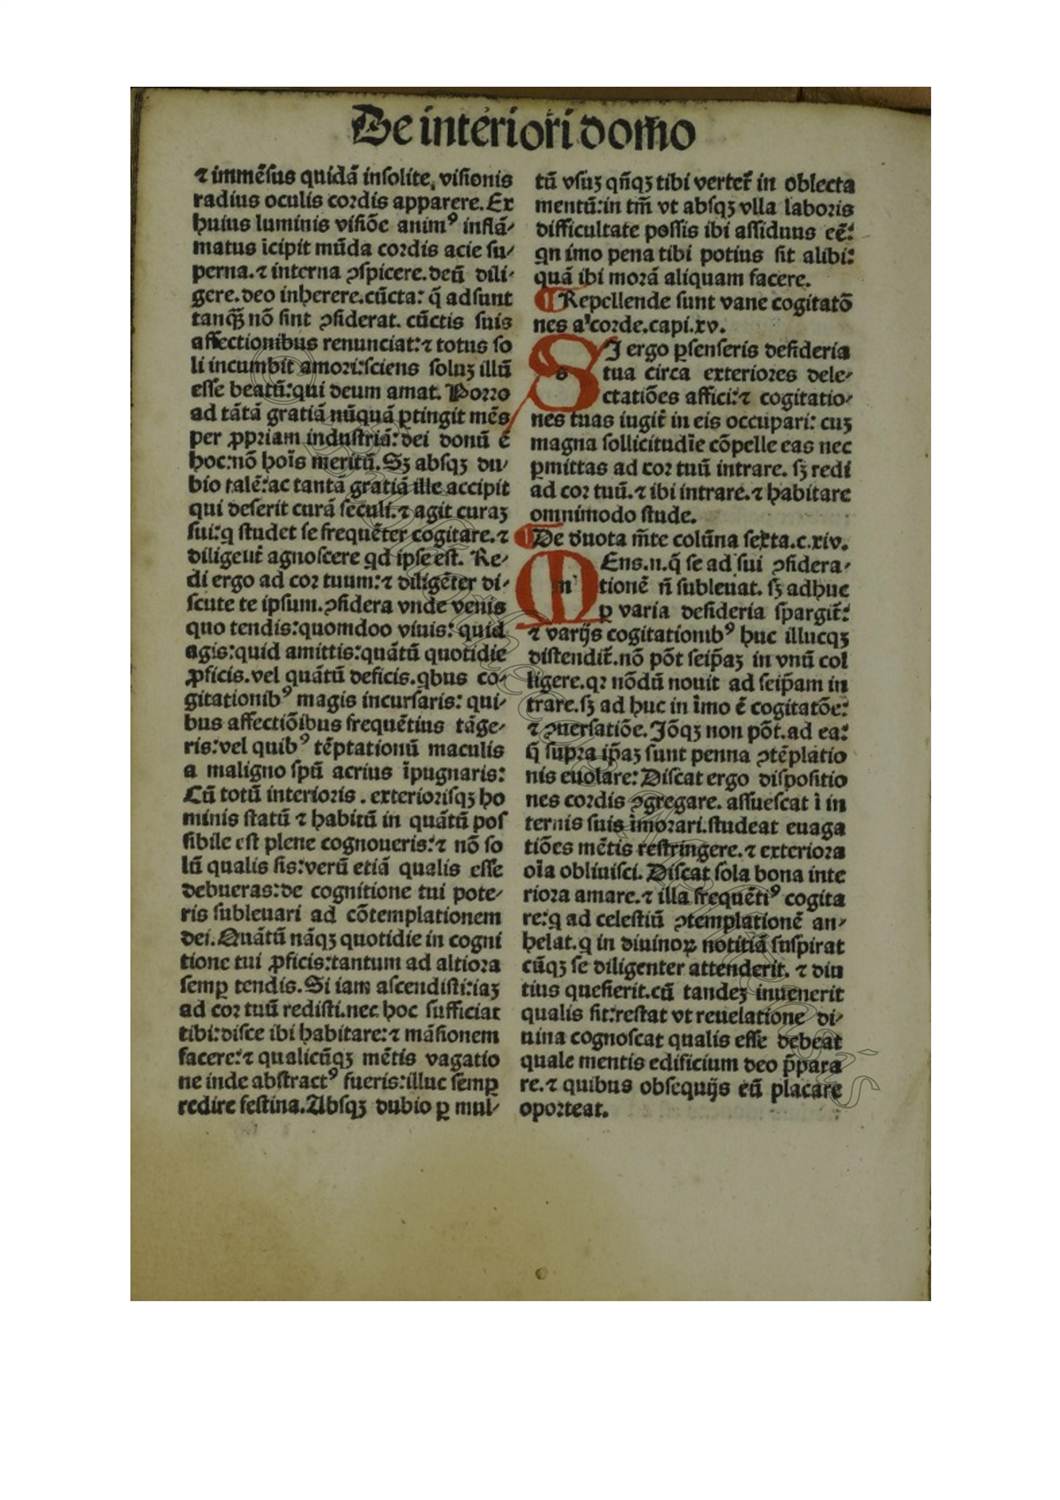 De interiori domo
⁊ immēsus quidā insolite, visionis
radius oculis cordis apparere. Ex
huius luminis visiōe animꝰ inflā⸗
matus īcipit mūda cordis acie su⸗
perna. ⁊ interna ꝯspicere. deū dili⸗
gere. deo inherere. cūcta: q̄ adsunt
tanq̄̄ nō sint ꝯsiderat. cūctis suis
affectionibus renunciat: ⁊ totus so
li incumbit amori: sciens soluꝫ illū
esse beatū: qui deum amat. Porro
ad tātā gratiā nūquā ꝑtingit mēs
per ꝓpriam industriā: dei donū ē
hoc: nō hoīs meritū. Sꝫ absqꝫ du⸗
bio talē: ac tantā gratiā ille accipit
qui deserit curā seculi. ⁊ agit curaꝫ
sui: q studet se frequēter cogitare. ⁊
diligeut̄ agnoscere qd ipse est. Re⸗
di ergo ad cor tuum: ⁊ diligēter di⸗
scute te ipsum. ꝯsidera vnde venis
quo tendis: quomdoo viuis: quid
agis: quid amittis: quātū quotidie
ꝓficis. vel quātū deficis. qbus co⸗
gitationibꝰ magis incursaris: qui⸗
bus affectiōibus frequētius tāge⸗
ris: vel quibꝰ tēptationū maculis
a maligno spū acrius īpugnaris:
Cū totū interioris . exteriorisqꝫ ho
minis statū ⁊ habitū in quātū pos
sibile est plene cognoueris: ⁊ nō so
lū qualis sis: verū etiā qualis esse
debueras: de cognitione tui pote⸗
ris subleuari ad cōtemplationem
dei. Quātū nāqꝫ quotidie in cogni
tione tui ꝓficis: tantum ad altiora
semꝑ tendis. Si iam ascendisti: iaꝫ
ad cor tuū redisti. nec hoc sufficiat
tibi: disce ibi habitare: ⁊ māsionem
facere: ⁊ qualicūqꝫ mētis vagatio
ne inde abstractꝰ fueris: illuc semꝑ
redire festina. Absqꝫ dubio ꝑ mul⸗
tū vsuꝫ qn̄qꝫ tibi vertet̄ in oblecta
mentū: in tm̄ vt absqꝫ vlla laboris
difficultate possis ibi assiduus eē:
qn imo pena tibi potius sit alibi:
quā ibi morā aliquam facere.
¶ Repellende sunt vane cogitatō
nes a corde. capi. xv.
SI ergo ꝑsenseris desideria
tua circa exteriores dele⸗
ctatiōes affici: ⁊ cogitatio⸗
nes tuas iugit̄ in eis occupari: cuꝫ
magna sollicitudīe cōpelle eas nec
ꝑmittas ad cor tuū intrare. sꝫ redi
ad cor tuū. ⁊ ibi intrare. ⁊ habitare
omnimodo stude.
¶ De duota m̄te colūna sexta. c. xiv.
MEns .n. q̄ se ad sui ꝯsidera⸗
tionē n̄ subleuat. sꝫ adhuc
ꝑ varia desideria spargit̄:
⁊ varijs cogitationibꝰ huc illucqꝫ
distendit̄. nō pōt seip̄aꝫ in vnū col
ligere. qꝛ nōdū nouit ad seip̄am in
trare. sꝫ ad huc in īmo ē cogitatōe:
⁊ ꝯuersatiōe. Jōqꝫ non pōt. ad ea:
q̄ supra ip̄aꝫ sunt penna ꝯtēplatio
nis euolare: Discat ergo dispositio
nes cordis ꝯgregare. assuescat ī in
ternis suis īmorari. studeat euaga
tiōes mētis restringere. ⁊ exteriora
oīa obliuisci. Discat sola bona inte
riora amare. ⁊ illa frequētiꝰ cogita
re: q ad celestiū ꝯtemplationē an⸗
helat. q in diuinoꝝ notitiā suspirat
cūqꝫ se diligenter attenderit. ⁊ diu
tius quesierit. cū tandeꝫ inuenerit
qualis sit: restat vt reuelatione di⸗
uina cognoscat qualis esse debeat
quale mentis edificium deo p̄para
re. ⁊ quibus obsequijs eū placare
oporteat.